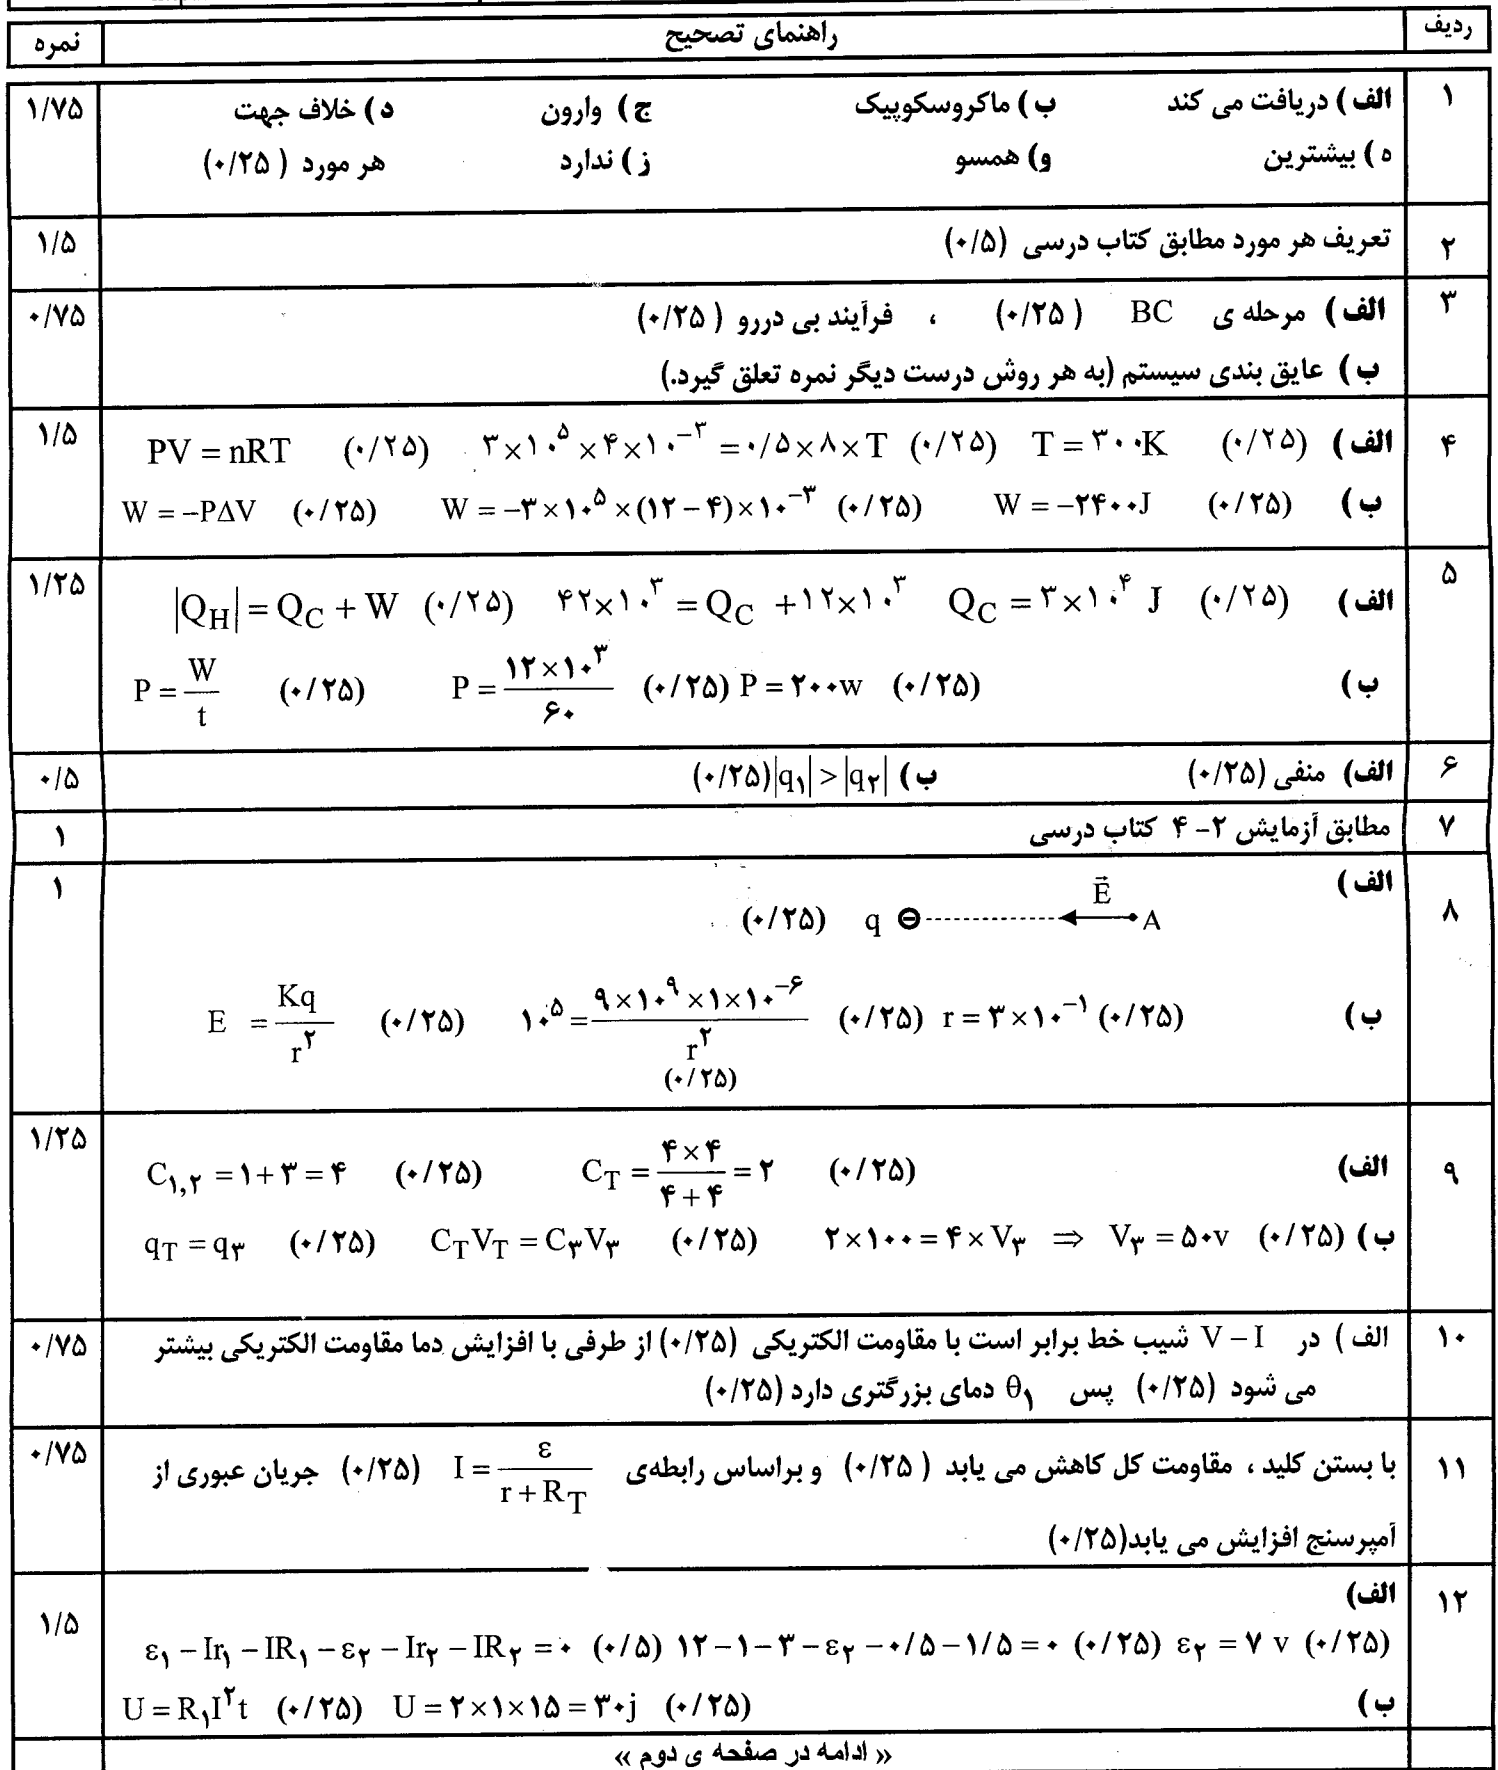 ردیف راهنمای تصحیح نمره
۱ الف ) دریافت می کند ب ) ماکروسکوپیک ج ) وارون د ) خلاف جهت ۱/۷۵
ه ) بیشترین و) همسو ز ) ندارد هر مورد ( ۰/۲۵)
۲ تعریف هر مورد مطابق کتاب درسی (۰/۵) ۱/۵
۳ الف ) مرحله ی BC ( ۰/۲۵) ، فرآیند بی دررو ( ۰/۲۵) ۰/۷۵
ب ) عایق بندی سیستم (به هر روش درست دیگر نمره تعلق گیرد.)
۴ الف ) PV = nRT (۰/۲۵) ۳×۱۰^۵ ×۴×۱۰^−۳ = ۰/۵×۸×T (۰/۲۵) T = ۳۰۰K (۰/۲۵) ۱/۵
ب ) W = −PΔV (۰/۲۵) W = −۳×۱۰^۵ ×(۱۲−۴)×۱۰^−۳ (۰/۲۵) W = −۲۴۰۰J (۰/۲۵)
۵ الف ) |Q_H| = Q_C + W (۰/۲۵) ۴۲×۱۰^۳ = Q_C +۱۲×۱۰^۳ Q_C = ۳×۱۰^۴ J (۰/۲۵) ۱/۲۵
ب ) P = W/t (۰/۲۵) P = ۱۲×۱۰^۳/۶۰ (۰/۲۵) P = ۲۰۰w (۰/۲۵)
۶ الف) منفی (۰/۲۵) ب ) |q_۱| > |q_۲| (۰/۲۵) ۰/۵
۷ مطابق آزمایش ۲- ۴ کتاب درسی ۱
۸ الف ) ۱
(۰/۲۵) q ⊖ E⃗ A
ب ) E = Kq/r^۲ (۰/۲۵) ۱۰^۵ = ۹×۱۰^۹ ×۱×۱۰^−۶/r^۲ (۰/۲۵) r = ۳×۱۰^−۱ (۰/۲۵)
(۰/۲۵)
۹ الف) C_۱,۲ = ۱+۳ = ۴ (۰/۲۵) C_T = ۴×۴/۴+۴ = ۲ (۰/۲۵) ۱/۲۵
ب ) q_T = q_۳ (۰/۲۵) C_T V_T = C_۳ V_۳ (۰/۲۵) ۲×۱۰۰ = ۴×V_۳ ⇒ V_۳ = ۵۰v (۰/۲۵)
۱۰ الف ) در V − I شیب خط برابر است با مقاومت الکتریکی (۰/۲۵) از طرفی با افزایش دما مقاومت الکتریکی بیشتر ۰/۷۵
می شود (۰/۲۵) پس θ_۱ دمای بزرگتری دارد (۰/۲۵)
۱۱ با بستن کلید ، مقاومت کل کاهش می یابد ( ۰/۲۵) و براساس رابطه‌ی I = ε/r + R_T (۰/۲۵) جریان عبوری از ۰/۷۵
آمپرسنج افزایش می یابد(۰/۲۵)
۱۲ الف) ۱/۵
ε_۱ − Ir_۱ − IR_۱ − ε_۲ − Ir_۲ − IR_۲ = ۰ (۰/۵) ۱۲−۱−۳−ε_۲ −۰/۵−۱/۵ = ۰ (۰/۲۵) ε_۲ = ۷ v (۰/۲۵)
ب ) U = R_۱I^۲t (۰/۲۵) U = ۲×۱×۱۵ = ۳۰j (۰/۲۵)
« ادامه در صفحه ی دوم »